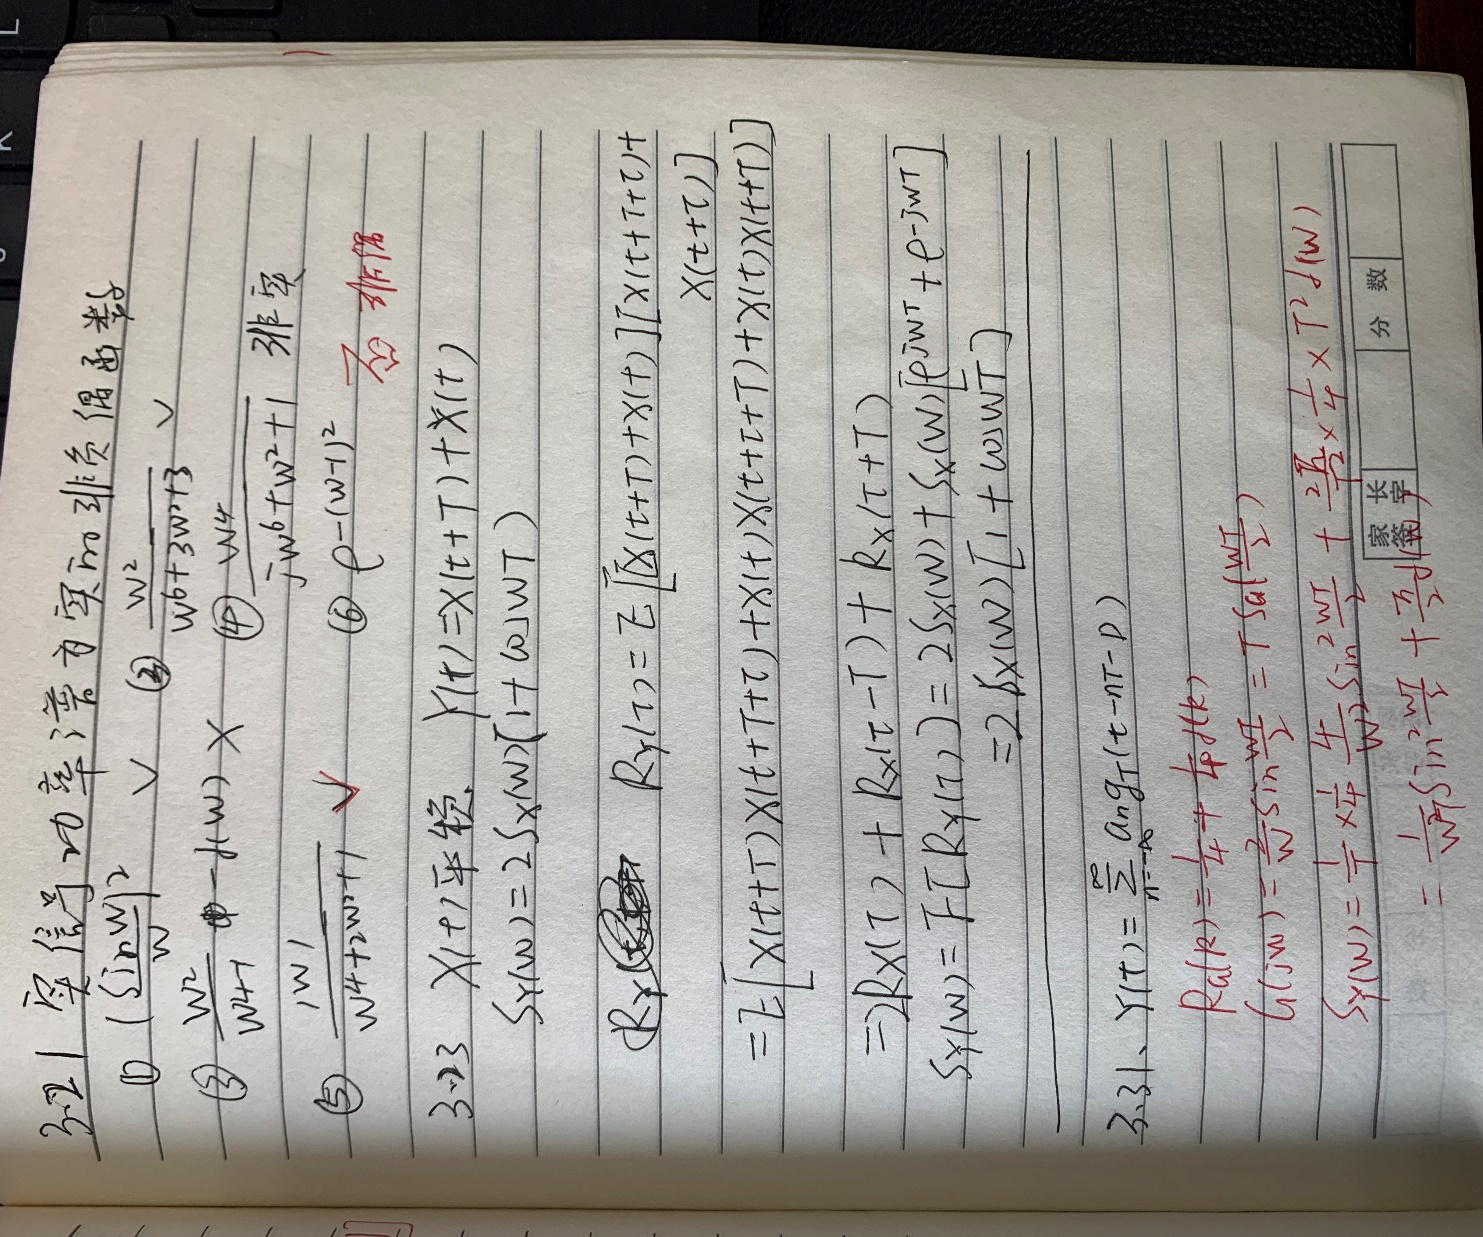 3.21 实信号功率谱为实的非负偶函数
① (sinw/w)² ✓ ② w²/(w⁶+3w²+3) ✓
③ w²/(w⁴+1) - δ(w) × ④ w⁴/(jw⁶+w²+1) 非实
⑤ |w|/(w⁴+2w²+1) ✓ ⑥ e^{-(w-1)²} 非偶
3.23 X(t)平稳. Y(t)=X(t+T)+X(t)
S_Y(w)=2S_X(w)[1+coswT)
R_Y R_Y(τ)=E[[X(t+T)+X(t)][X(t+T+τ)+
X(t+τ)]
=E[X(t+T)X(t+T+τ)+X(t)X(t+τ+T)+X(t)X(t+T)]
=2R_X(τ)+R_X(τ-T)+R_X(τ+T)
S_Y(w)=F[R_Y(τ)]=2S_X(w)+S_X(w)[e^{jwT}+e^{-jwT}]
=2S_X(w)[1+coswT]
3.31、Y(t)=∑_{n=-∞}^{∞} a_n g_T(t-nT-D)
R_a(k)=1/4+1/4 δ(k)
G(jw)=2/w sin wT/2 = T Sa(wT/2)
S_Y(w)=1/T×1/4×4/w² sin² wT/2 + 2π/T²×1/4×T²δ(w)
=1/(w²T) sin² wT/2 + π/2 δ(w)
家长签字 分数